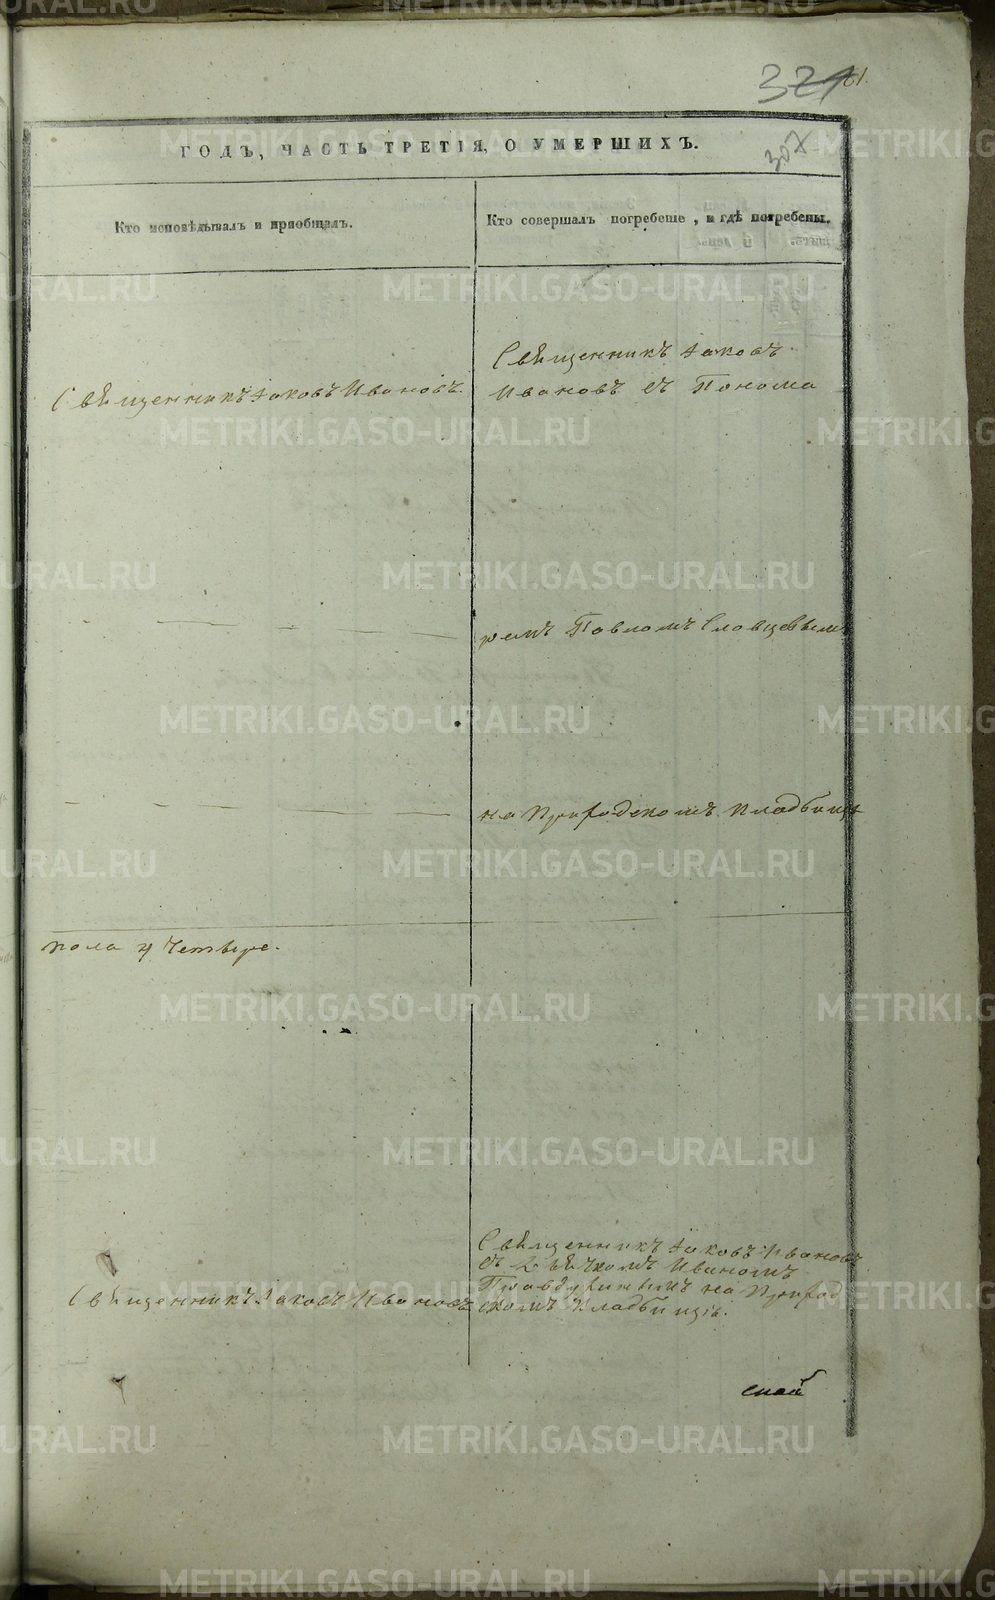 321
61
307
ГОДЪ, ЧАСТЬ ТРЕТІЯ, О УМЕРШИХЪ.
Кто исповѣдывалъ и пріобщалъ.
Кто совершалъ погребеніе, и гдѣ погребены.
Священникъ Іаковъ Ивановъ.
Священникъ Іаковъ
Ивановъ съ Понома
ремъ Павломъ Словцевымъ
на Приходскомъ кладбищѣ
пола 4 Четыре.
Священникъ Іаковъ Ивановъ
Священникъ Іаковъ Ивановъ
съ Дьячкомъ Иваномъ
на Приход
скомъ кладбищѣ.
METRIKI.GASO-URAL.RU